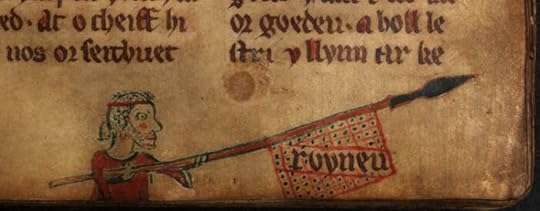 ed· Ac o cheiff hi
nos or seithuet
or goedeu· a holl le
stri y llynn ar ke
royneu